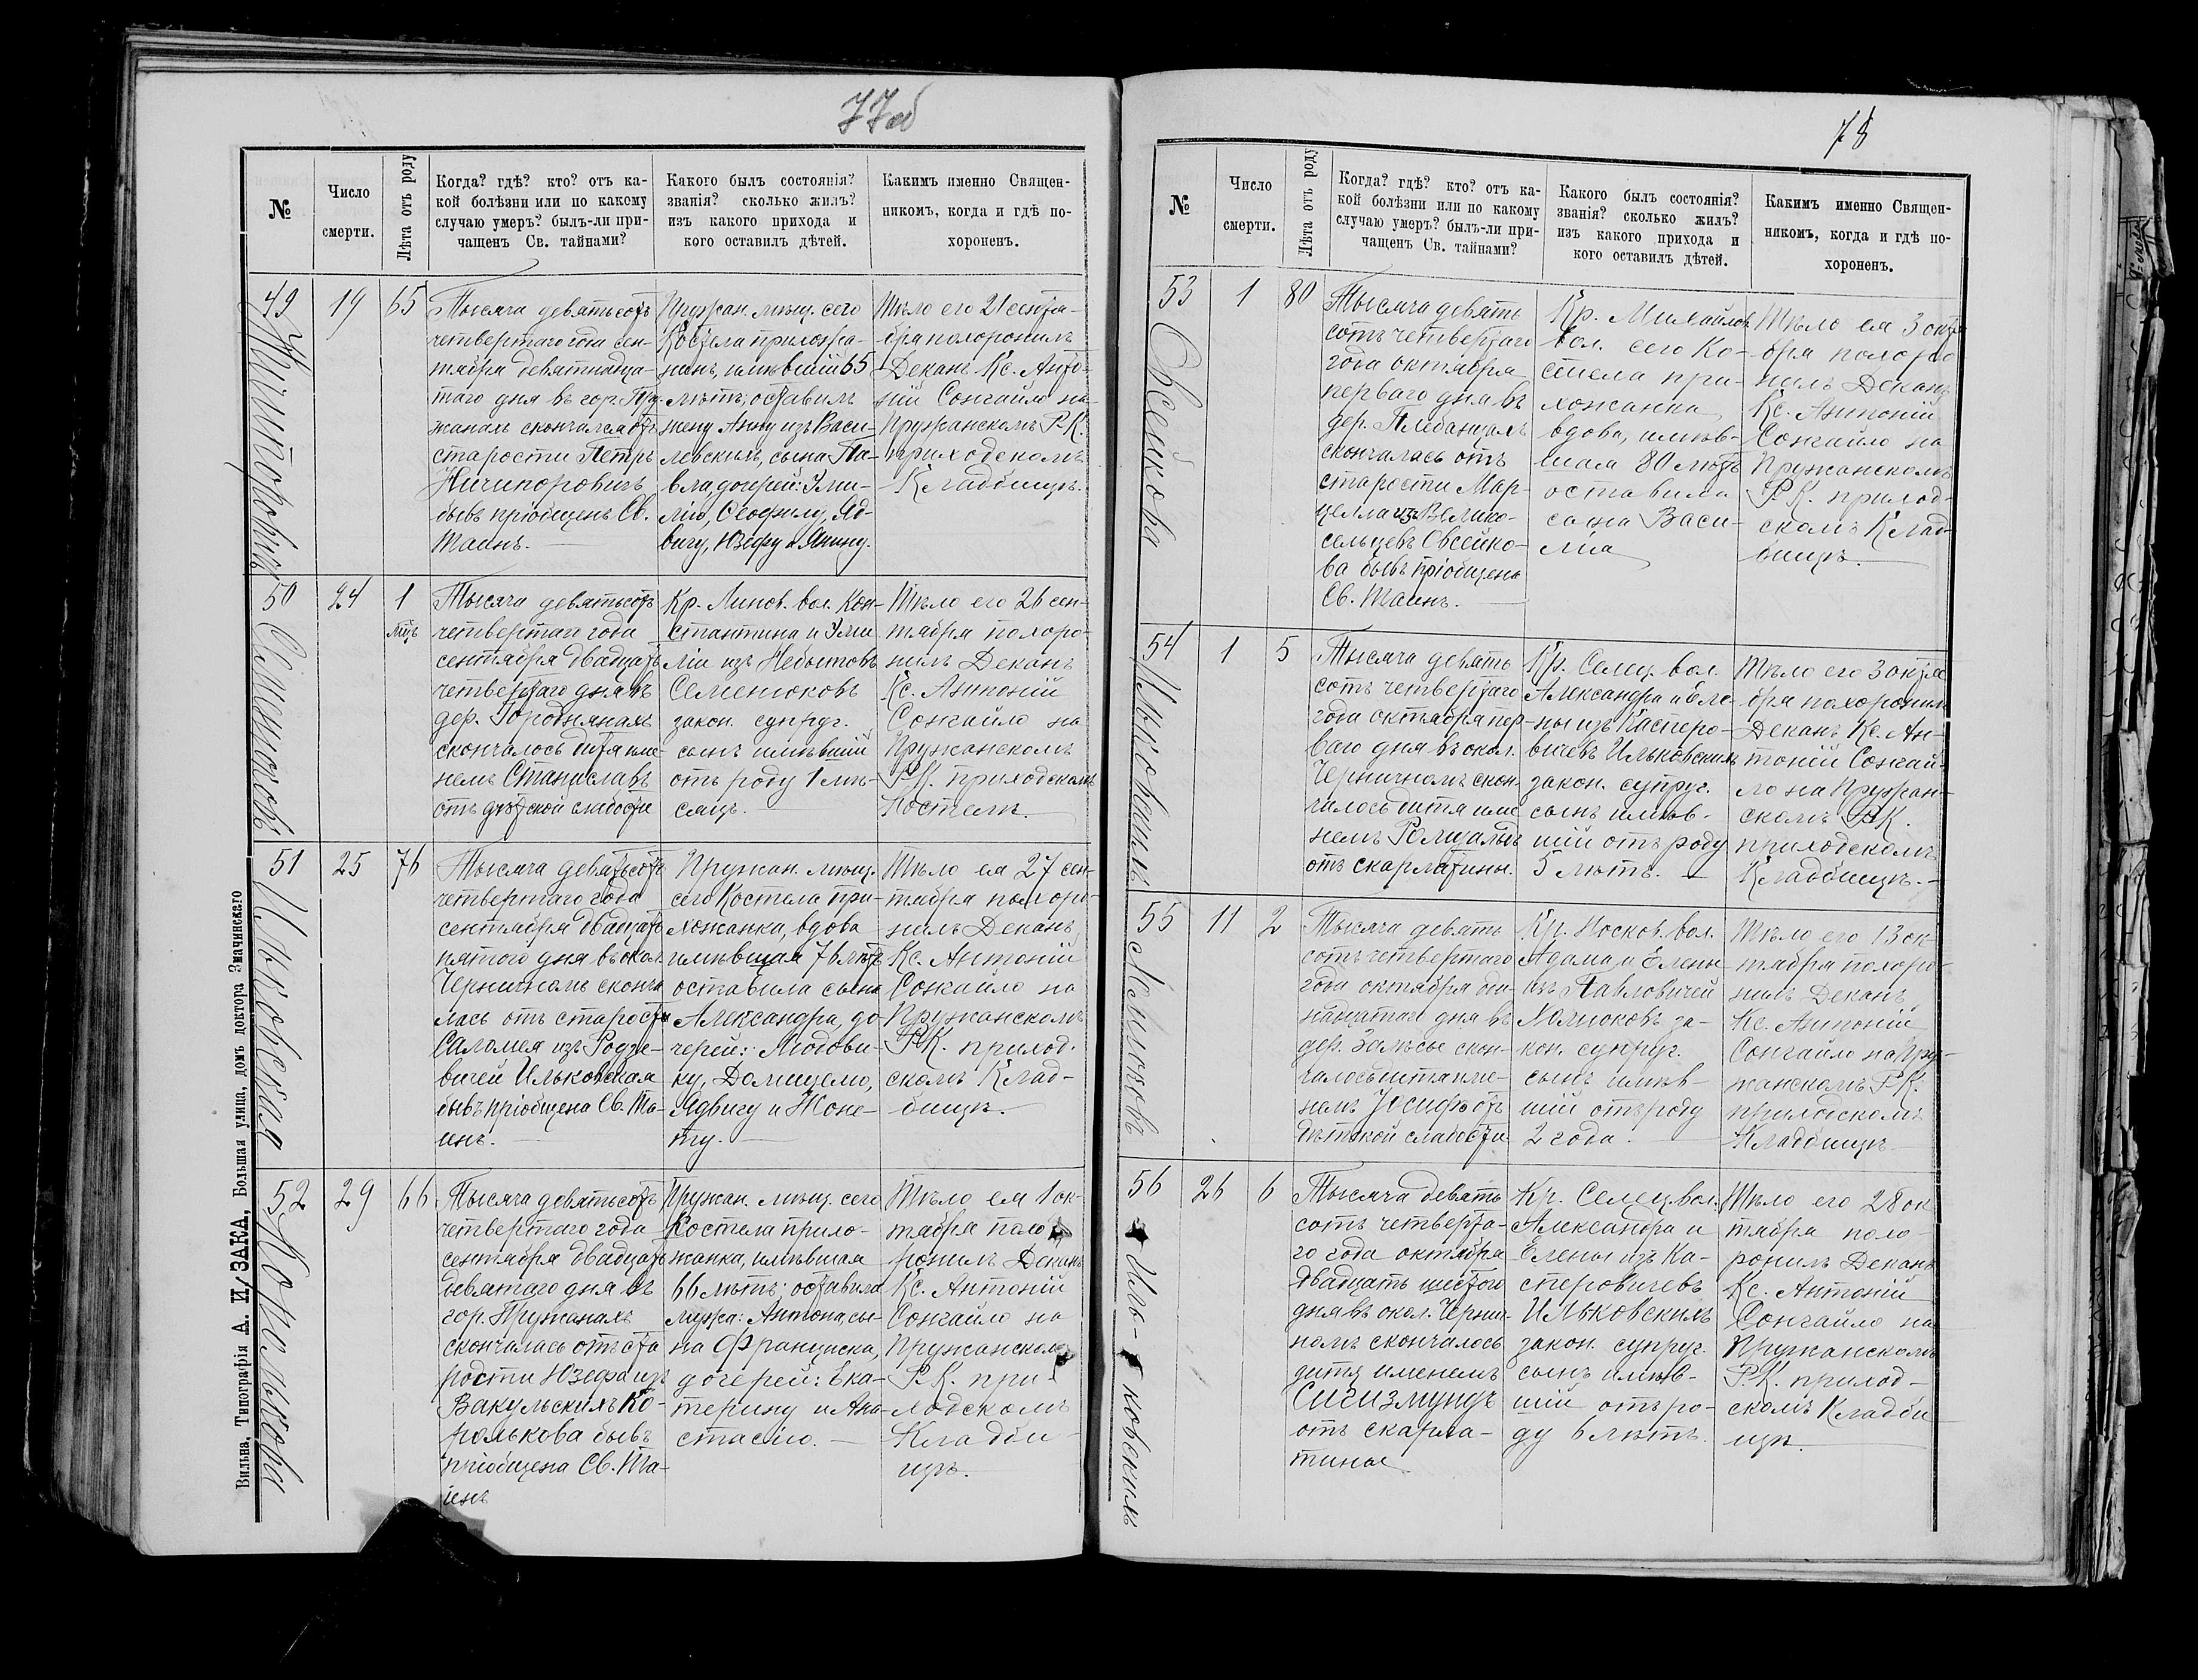 77об
№
Число
смерти.
Лѣта отъ роду
Когда? гдѣ? кто? отъ ка-
кой болѣзни или по какому
случаю умеръ? былъ-ли при-
чащенъ Св. тайнами?
Какого былъ состоянія?
званія? сколько жилъ?
изъ какого прихода и
кого оставилъ дѣтей.
Какимъ именно Священ-
никомъ, когда и гдѣ по-
хороненъ.
49
Ничипоровичъ
19
65
Тысяча девятьсотъ
четвертаго года сен-
тября девятнадца-
таго дня въ гор. Пру-
жанахъ скончался отъ
старости Петръ
Ничипоровичъ
бывъ пріобщенъ Св.
Таинъ.
Пружан. мѣщ. сего
Костела прихожа-
нинъ, имѣвшій 65
лѣтъ; оставилъ
жену Анну изъ Васи-
левскихъ, сына Па-
вла, дочерей: Эми-
лію, Ѳеофилу, Яд-
вигу, Юзефу и Янину.
Тѣло его 21 сентя-
бря похоронилъ
Деканъ Кс. Анто-
ній Сонгайло на
Пружанскомъ Р.К.
приходскомъ
Кладбищѣ.
50
Семенюковъ
24
1
мѣц
Тысяча девятьсотъ
четвертаго года
сентября двадцать
четвертаго дня въ
дер. Городнянахъ
скончалось дитя име-
немъ Станиславъ
отъ дѣтской слабости
Кр. Линов. вол. Кон-
стантина и Эми
ліи изъ Небытовъ
Семенюковъ
закон. супруг.
сынъ имѣвшій
отъ роду 1 мѣ-
сяцъ.
Тѣло его 26 сен-
тября похоро-
нилъ Деканъ
Кс. Антоній
Сонгайло на
Пружанскомъ
Р.К. приходскомъ
Костелѣ.
51
Ильковская
25
76
Тысяча девятьсотъ
четвертаго года
сентября двадцать
пятаго дня въ окол.
Черничномъ сконча
лась отъ старости
Саломея изъ Родзе-
вичей Ильковская
бывъ пріобщена Св. Та-
инъ.
Пружан. мѣщ.
сего Костела при-
хожанка, вдова
имѣвшая 76 лѣтъ
оставила сына
Александра, до-
черей: Людови-
ку, Домицелю,
Ядвигу и Жоне-
ту.
Тѣло ея 27 сен-
тября похоро-
нилъ Деканъ
Кс. Антоній
Сонгайло на
Пружанскомъ
Р.К. приход.
скомъ Клад-
бищѣ.
52
Королькова
29
66
Тысяча девятьсотъ
четвертаго года
сентября двадцать
девятаго дня въ
гор. Пружанахъ
скончалась отъ ста
рости Юзефа изъ
Вакульскихъ Ко-
ролькова бывъ
пріобщена Св. Та-
инъ
Пружан. мѣщ. сего
Костела прихо-
жанка, имѣвшая
66 лѣтъ; оставила
мужа: Антона, сы-
на Франциска,
дочерей: Ека-
терину и Ана-
стасію.
Тѣло ея 1 ок-
тября похо
ронилъ Деканъ
Кс. Антоній
Сонгайло на
Пружанскомъ
Р.К. при-
ходскомъ
Кладби-
щѣ.
Вильна, Типографія А. И. ЗАКА, Большая улица, домъ доктора Змачинскаго
78
№
Число
смерти.
Лѣта отъ роду
Когда? гдѣ? кто? отъ ка-
кой болѣзни или по какому
случаю умеръ? былъ-ли при-
чащенъ Св. тайнами?
Какого былъ состоянія?
званія? сколько жилъ?
изъ какого прихода и
кого оставилъ дѣтей.
Какимъ именно Священ-
никомъ, когда и гдѣ по-
хороненъ.
53
Овсейкова
1
80
Тысяча девять
сотъ четвертаго
года октября
перваго дня въ
дер. Плебанцахъ
скончалась отъ
старости Мар-
целла изъ Велико-
сельцевъ Овсейко-
ва бывъ пріобщена
Св. Таинъ.
Кр. Михайлов.
вол. сего Ко-
стела при-
хожанка
вдова, имѣв-
шая 80 лѣтъ
оставила
сына Васи-
лія
Тѣло ея 3 октя
бря похоро
нилъ Деканъ
Кс. Антоній
Сонгайло на
Пружанскомъ
Р.К. приход-
скомъ Клад-
бищѣ.
54
Ильковскихъ
1
5
Тысяча девять
сотъ четвертаго
года октября пер-
ваго дня въ окол.
Черничномъ скон-
чалось дитя име
немъ Ромуальдъ
отъ скарлатины.
Кр. Селец. вол.
Александра и Еле-
ны изъ Касперо-
вичевъ Ильковскихъ
закон. супруг.
сынъ имѣв-
шій отъ роду
5 лѣтъ.
Тѣло его 3 октя
бря похоронилъ
Деканъ Кс. Ан-
тоній Сонгай-
ло на Пружан-
скомъ Р.К.
приходскомъ
Кладбищѣ.
55
11
2
Тысяча девять
сотъ четвертаго
года октября оди
надцатаго дня въ
дер. Залѣсье скон-
чалось дитя име-
немъ Іосифъ отъ
дѣтской слабости
Кр. Носков. вол.
Адама и Елены
изъ Павловичей
за-
кон. супруг.
сынъ имѣв-
шій отъ роду
2 года.
Тѣло его 13 ок-
тября похоро-
нилъ Деканъ
Кс. Антоній
Сонгайло на Пру-
жанскомъ Р.К.
приходскомъ
Кладбищѣ
56
Иль-ковскихъ
26
6
Тысяча девять
сотъ четверта-
го года октября
двадцать шестого
дня въ окол. Чернич-
номъ скончалось
дитя именемъ
Сигизмундъ
отъ скарла-
тины
Кр. Селец. вол.
Александра и
Елены изъ Ка-
сперовичевъ
Ильковскихъ
закон. супруг.
сынъ имѣв-
шій отъ ро-
ду 6 лѣтъ.
Тѣло его 28 ок
тября похо-
ронилъ Деканъ
Кс. Антоній
Сонгайло на
Пружанскомъ
Р.К. приход-
скомъ Кладби
щѣ.